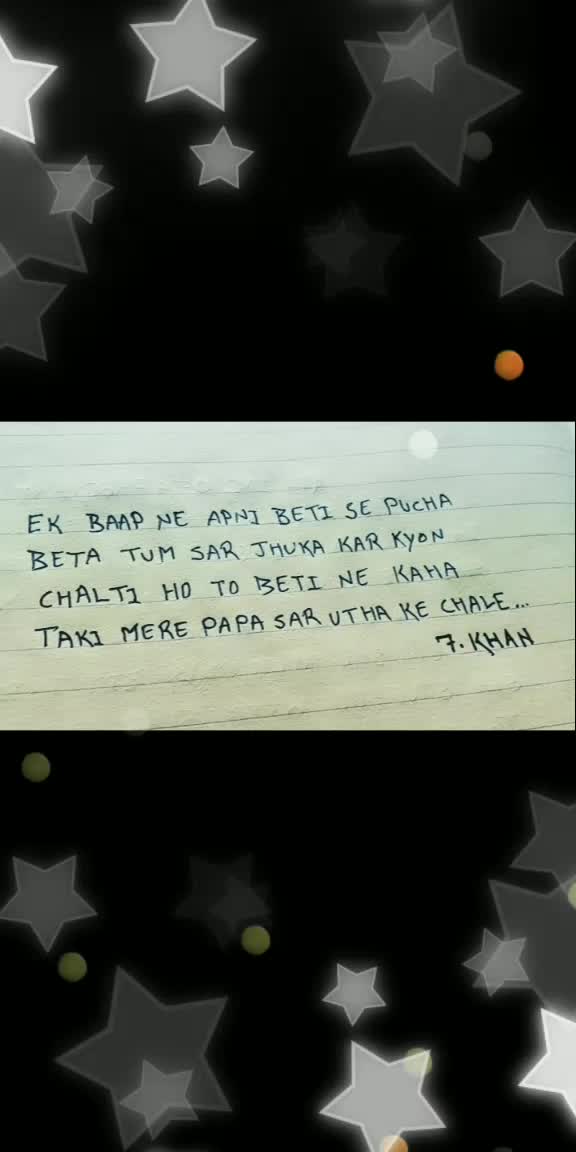 EK BAAP NE APNI BETI SE PUCHA
BETA TUM SAR JHUKA KAR KYON
CHALTI HO TO BETI NE KAHA
TAKI MERE PAPA SAR UTHA KE CHALE...
7. KHAN